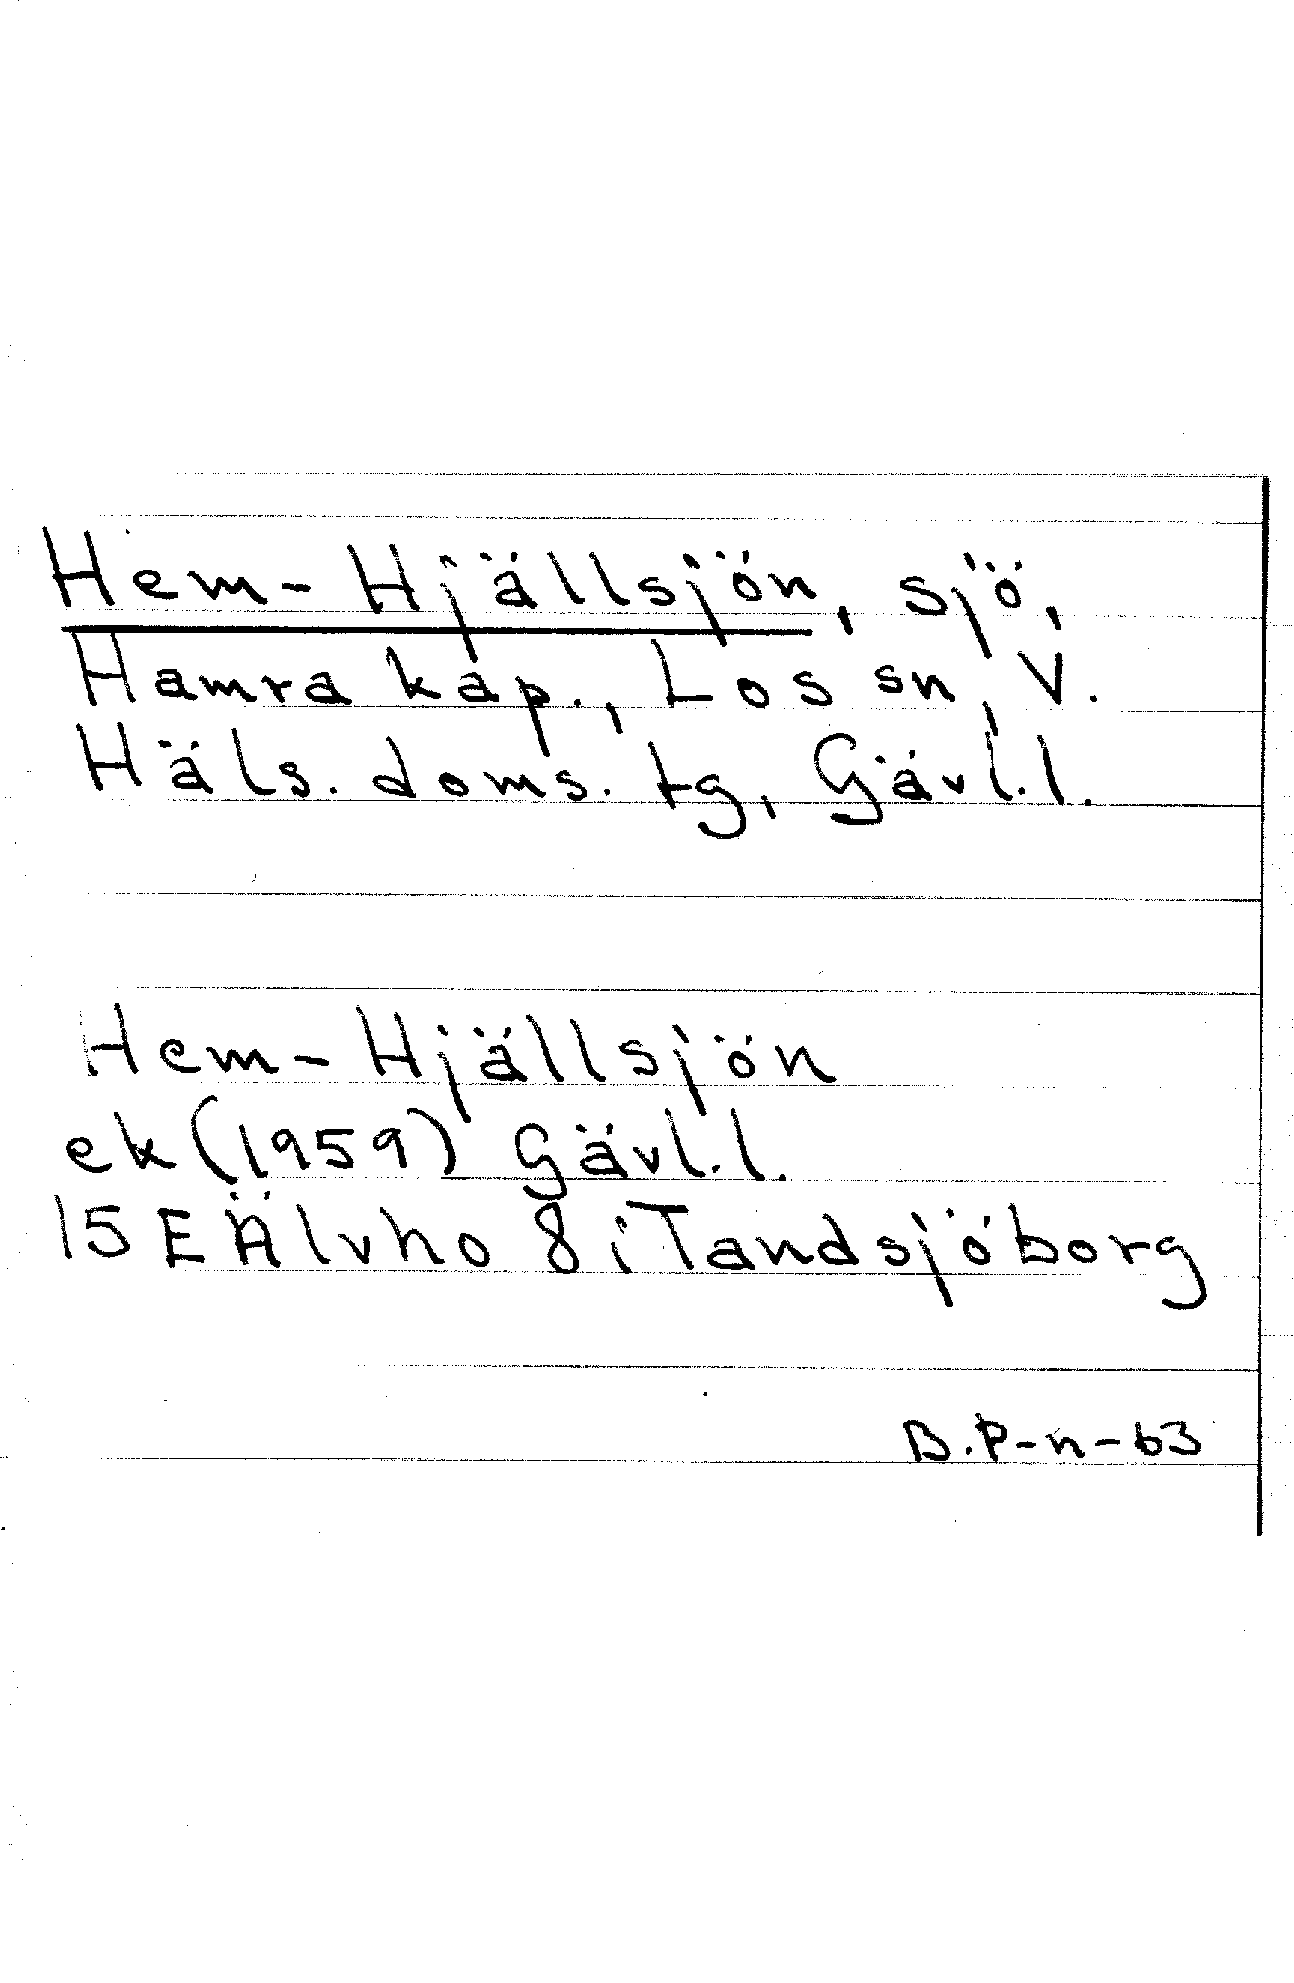 Hem-Hjällsjön, sjö,
Hamra kap., Los sn, V.
Häls. doms. tg, Gävl.l.
Hem-Hjällsjön
ek (1959) Gävl.l.
15 E Älvho 8 i Tandsjöborg
B.P-n-63